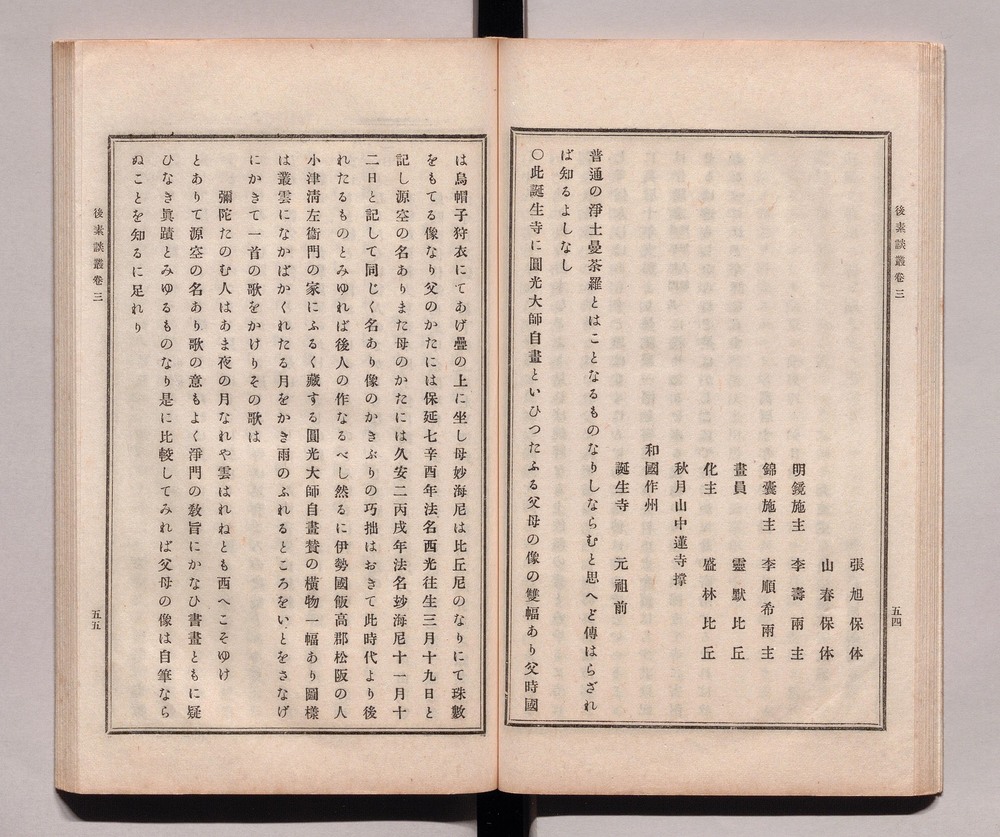 後素談叢卷三
五四
張旭保体
山春保体
明鏡施主　李壽雨主
錦嚢施主　李順希雨主
畫員　靈默比丘
化主　盛林比丘
秋月山中蓮寺撑
和國作州
誕生寺　元祖前
普通の淨土曼荼羅とはことなるものなりしならむと思へど傳はらざれ
ば知るよしなし
〇此誕生寺に圓光大師自畫といひつたふる父母の像の雙幅あり父時國
は烏帽子狩衣にてあげ疊の上に坐し母妙海尼は比丘尼のなりにて珠數
をもてる像なり父のかたには保延七辛酉年法名西光往生三月十九日と
記し源空の名ありまた母のかたには久安二丙戌年法名玅海尼十一月十
二日と記して同じく名あり像のかきぶりの巧拙はおきて此時代より後
れたるものとみゆれば後人の作なるべし然るに伊勢國飯高郡松阪の人
小津淸左衞門の家にふるく藏する圓光大師自畫賛の橫物一幅あり圖樣
は叢雲になかばかくれたる月をかき雨のふれるところをいとをさなげ
にかきて一首の歌をかけりその歌は
彌陀たのむ人はあま夜の月なれや雲はれねとも西へこそゆけ
とありて源空の名あり歌の意もよく淨門の敎旨にかなひ書畫ともに疑
ひなき眞蹟とみゆるものなり是に比較してみれば父母の像は自筆なら
ぬことを知るに足れり
後素談叢卷三
五五